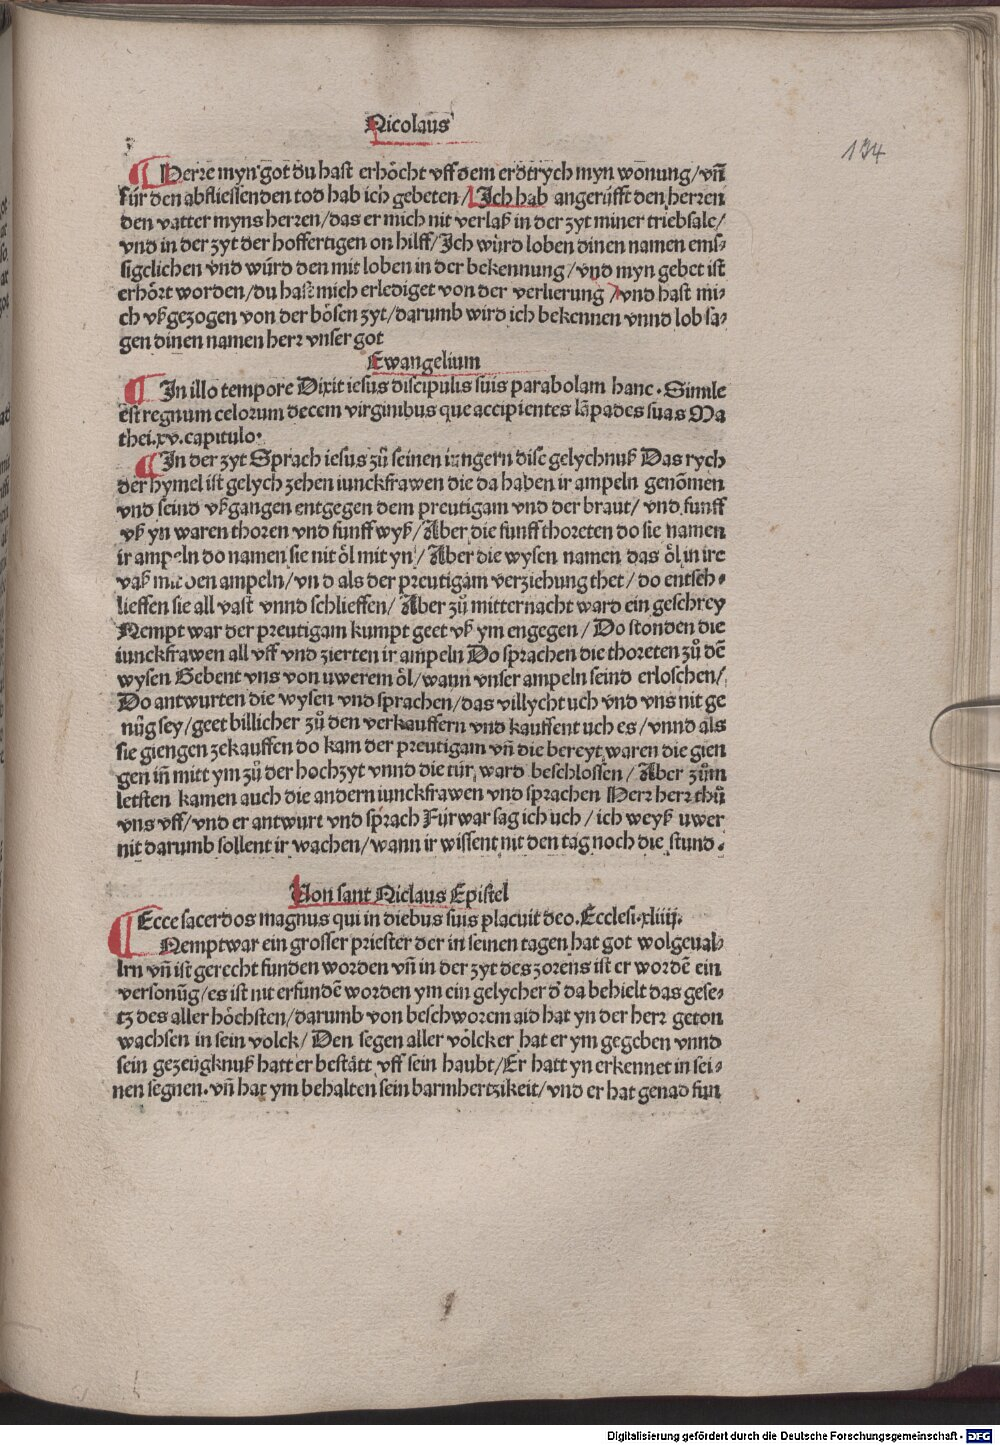 Nicolaus
134
Herre myn got du hast erhöcht vff dem erdtrych myn wonung/vñ
für den abfliessenden tod hab ich gebeten/Jch hab angerüfft den herren
den vatter myns herren/das er mich nit verlaß in der zyt miner triebsale/
vnd in der zyt der hoffertigen on hilff/Jch würd loben dinen namen ems⸗
sigclichen vnd würd den mit loben in der bekennung/vnd myn gebet ist
erhört worden/du hast mich erlediget von der verlierung/vnd hast mi⸗
ch vßgezogen von der bösen zyt/darumb wird ich bekennen vnnd lob sa⸗
gen dinen namen herr vnser got
Ewangelium
Jn illo tempore Dixit iesus discipulis suis parabolam hanc. Simile
est regnum celorum decem virginibus que accipientes lãpades suas Ma
thei.xv.capitulo.
Jn der zyt Sprach iesus zů seinen iungern dise gelychnuß Das rych
der hymel ist gelych zehen iunckfrawen die da haben ir ampeln genõmen
vnd seind vßgangen entgegen dem preutigam vnd der braut/vnd funff
vß yn waren thoren vnd funff wyß/Aber die funff thoreten do sie namen
ir ampeln do namen sie nit öl mit yn/Aber die wysen namen das öl in ire
vaß mit den ampeln/vn d als der preutigam verziehung thet/do entsch⸗
lieffen sie all vast vnnd schlieffen/Aber zů mitternacht ward ein geschrey
Nempt war der preutigam kumpt geet vß ym engegen/Do stonden die
iunckfrawen all vff vnd zierten ir ampeln Do sprachen die thoreten zů dẽ
wysen Gebent vns von uwerem öl/wann vnser ampeln seind erloschen/
Do antwurten die wysen vnd sprachen/das villycht uch vnd vns nit ge
nüg sey/geet billicher zů den verkauffern vnd kauffent uch es/vnnd als
sie giengen zekauffen do kam der preutigam vñ die bereyt waren die gien
gen iñ mitt ym zů der hochzyt vnnd die tür ward beschlossen/Aber zům
letsten kamen auch die andern iunckfrawen vnd sprachen Herr herr thů
vns vff/vnd er antwurt vnd sprach Fürwar sag ich uch/ich weyß uwer
nit darumb sollent ir wachen/wann ir wissent nit den tag noch die stund.
Von sant Niclaus Epistel
Ecce sacerdos magnus qui in diebus suis placuit deo. Ecclesi.xliiij.
Nemptwar ein grosser priester der in seinen tagen hat got wolgeual⸗
len vñ ist gerecht funden worden vñ in der zyt des zorens ist er wordẽ ein
versonũg/es ist nit erfundẽ worden ym ein gelycher đ da behielt das gese⸗
tz des aller höchsten/darumb von beschworem aid hat yn der herr geton
wachsen in sein volck/Den segen aller völcker hat er ym gegeben vnnd
sein gezeügknuß hatt er bestätt vff sein haubt/Er hatt yn erkennet in sei⸗
nen segnen.vñ hat ym behalten sein barmhertzikeit/vnd er hat genad fun
Digitalisierung gefördert durch die Deutsche Forschungsgemeinschaft - DFG